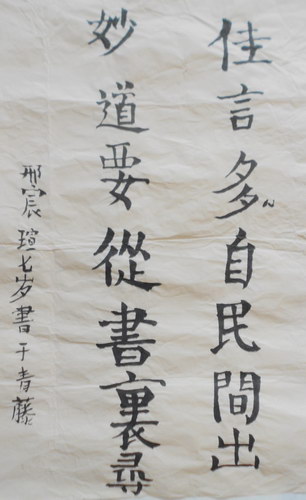 佳言多自民間出
妙道要從書裏尋
邢宸瑄七岁書于青藤